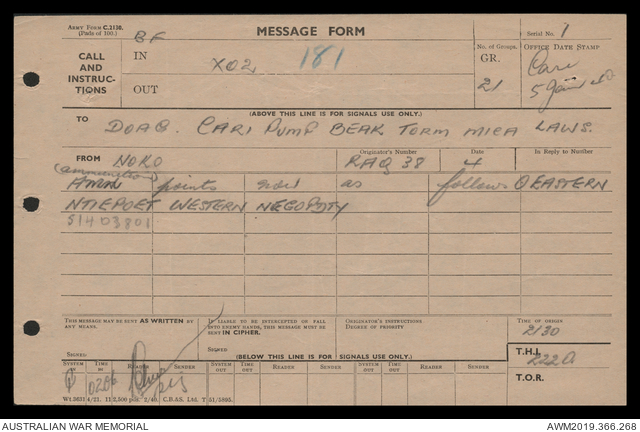 Army Form C.2138.
(Pads of 100.)
MESSAGE FORM
Serial No. 1
CALL AND INSTRUCTIONS
BF
IN
X02
181
OUT
No. of Groups.
GR.
21
OFFICE DATE STAMP
Cari
5
(ABOVE THIS LINE IS FOR SIGNALS USE ONLY.)
TO
DOAQ. CARI PUMP BEAK TORM MICA LAWS.
FROM
NOKO
Originator's Number
RAQ 38
Date
4
In Reply to Number
(ammunition)
Amn points as follows O EASTERN
WESTERN
51403801
THIS MESSAGE MAY BE SENT AS WRITTEN BY ANY MEANS.
SIGNED
IF LIABLE TO BE INTERCEPTED OR FALL INTO ENEMY HANDS, THIS MESSAGE MUST BE SENT IN CIPHER.
SIGNED
ORIGINATOR'S INSTRUCTIONS
DEGREE OF PRIORITY
TIME OF ORIGIN
2130
(BELOW THIS LINE IS FOR SIGNALS USE ONLY.)
T.H.I.
T.O.R.
SYSTEM IN
TIME IN
READER
SENDER
SYSTEM OUT
TIME OUT
READER
SENDER
SYSTEM OUT
TIME OUT
READER
SENDER
AUSTRALIAN WAR MEMORIAL
AWM2019.366.268